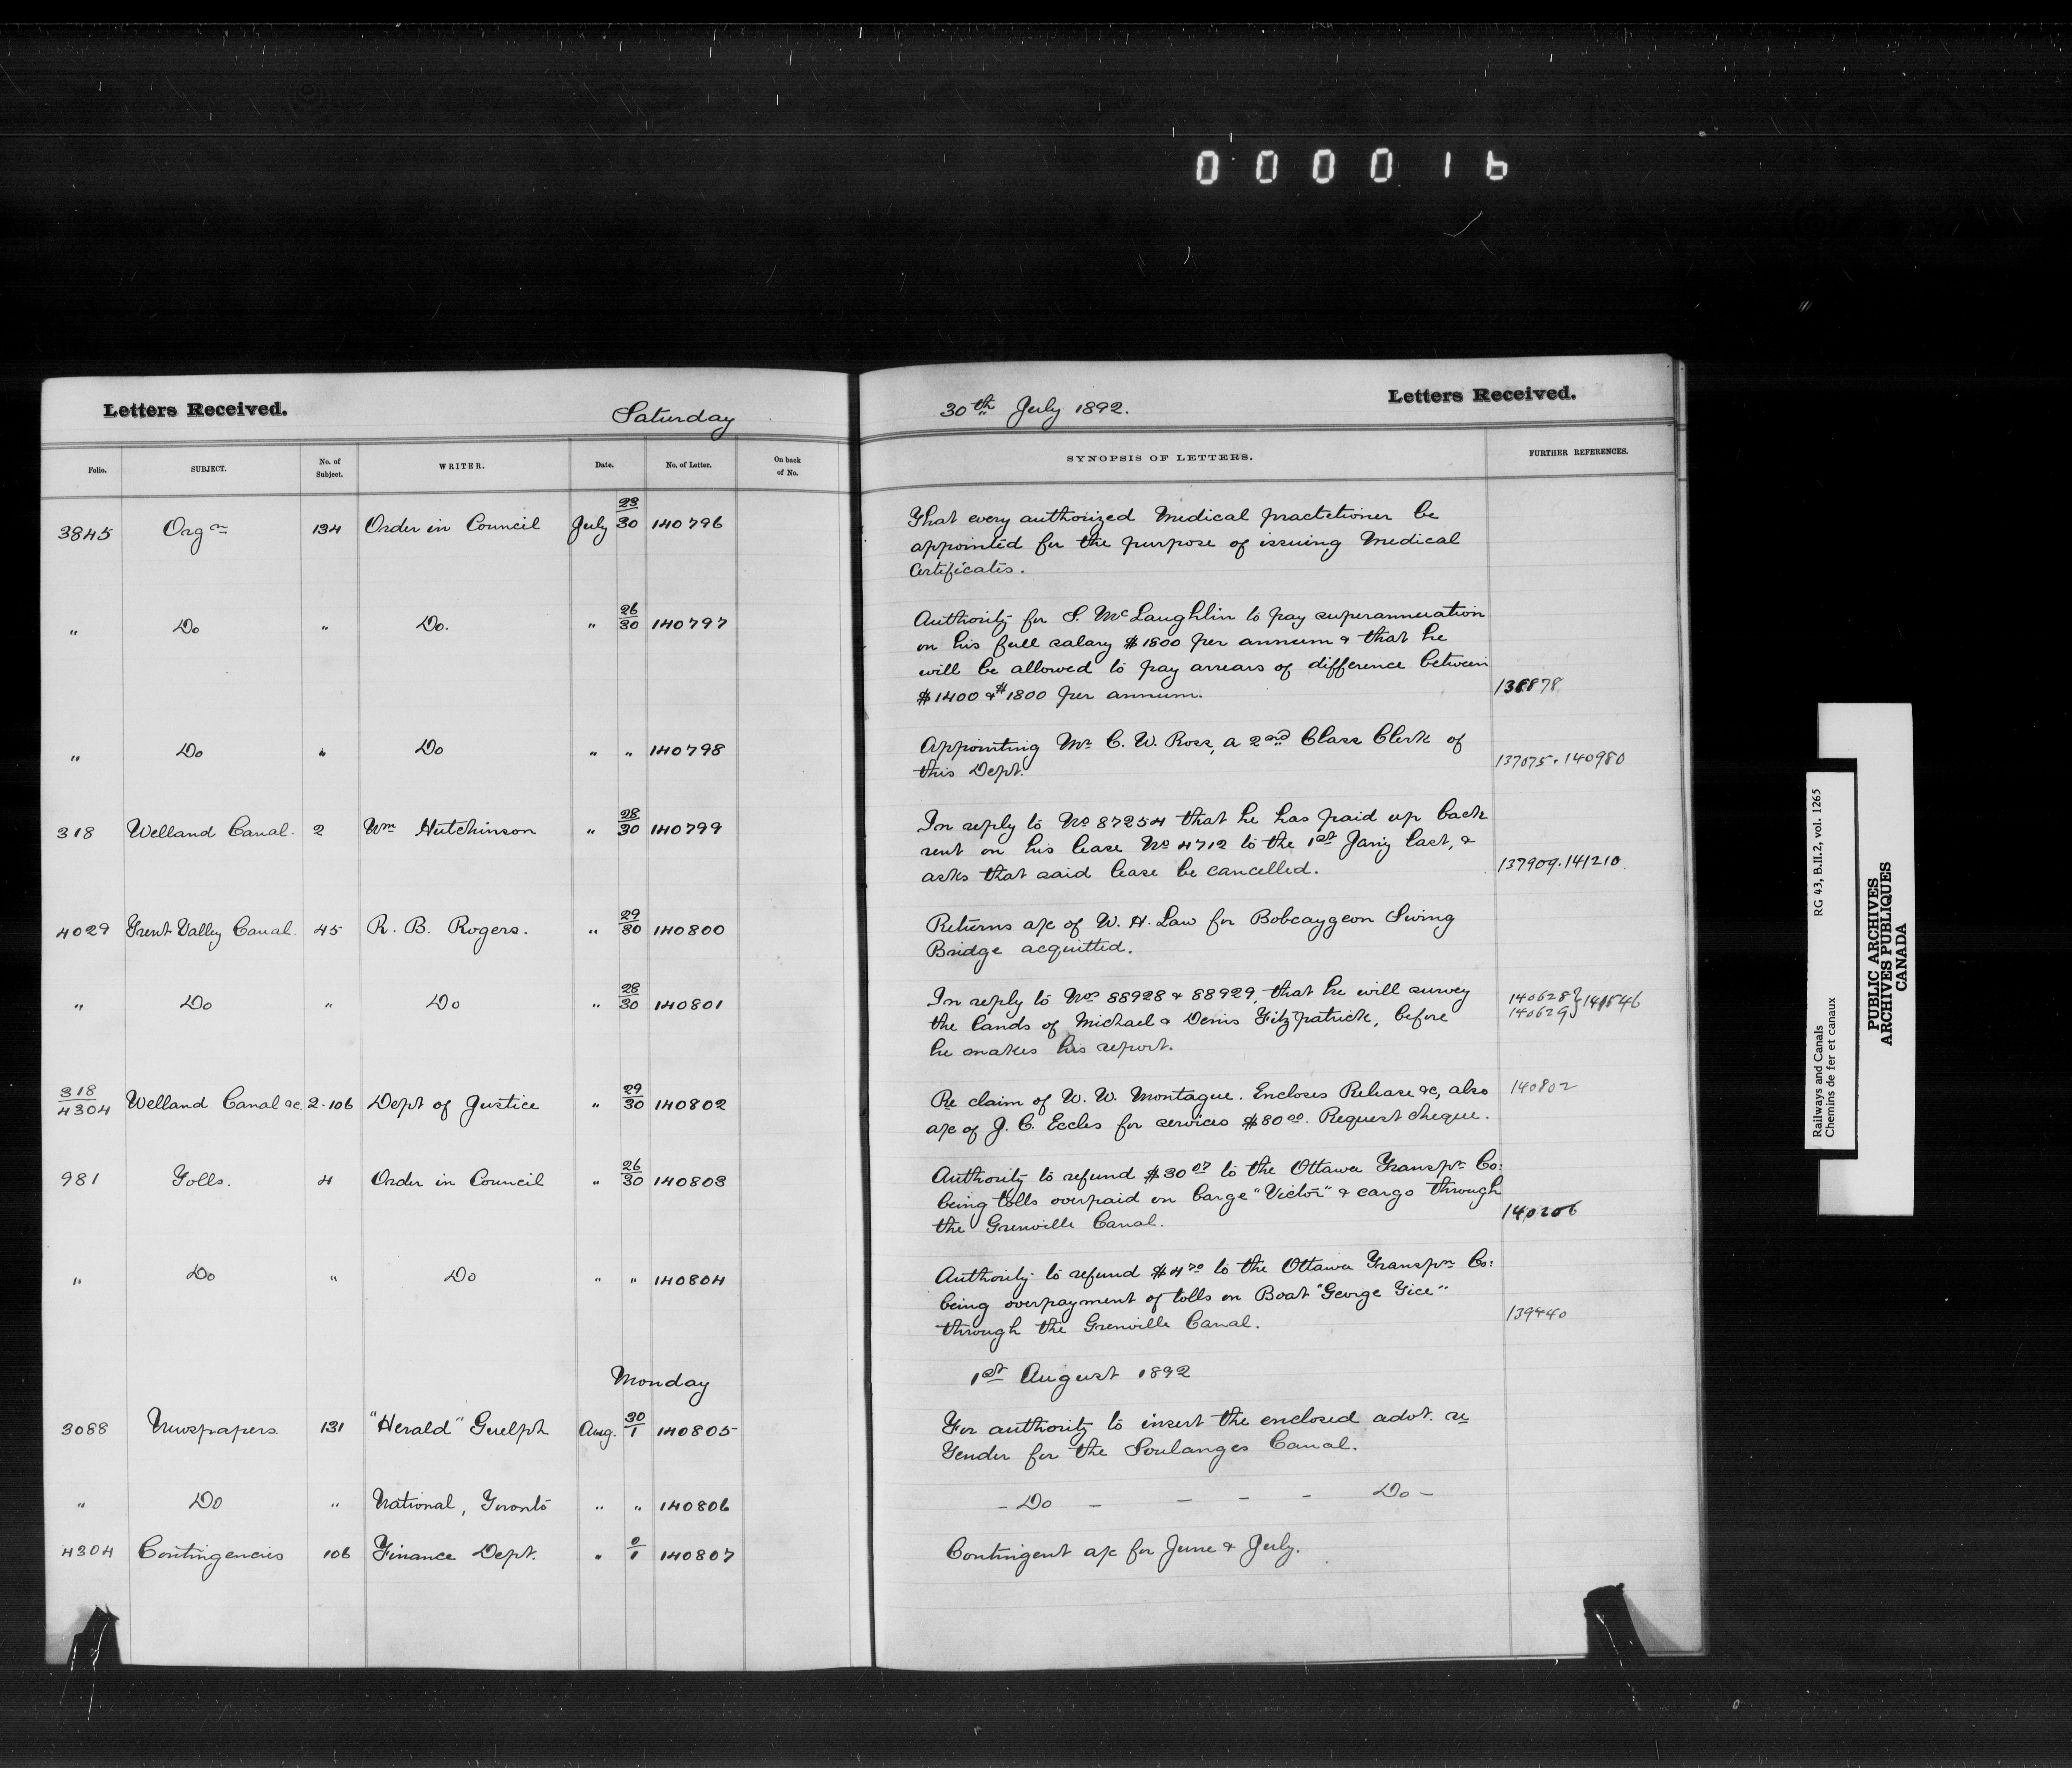 000016
Letters Received.
Saturday
30th July 1892.
Letters Received.
Folio. SUBJECT. No. of Subject. WRITER. Date. No. of Letter. On back of No. SYNOPSIS OF LETTERS. FURTHER REFERENCES.
3845 Orgn 134 Order in Council July 23/30 140796 That every authorized Medical practitioner be
appointed for the purpose of issuing Medical
Certificates.
" Do " Do. " 26/30 140797 Authority for S. McLaughlin to pay superannuation
on his full salary $1800 per annum & that he
will be allowed to pay arrears of difference between
$1400 & $1800 per annum.
" Do " Do " " 140798 Appointing Mr C. W. Ross, a 2nd Class Clerk of
this Dept. 137075. 140980
318 Welland Canal. 2 Wm Hutchinson " 28/30 140799 In reply to No 87254 that he has paid up back
rent on his lease No 4712 to the 1st Jany last, &
asks that said lease be cancelled. 137909. 141210
4029 Trent Valley Canal. 45 R. B. Rogers. " 29/30 140800 Returns a/c of W. H. Law for Bobcaygeon Swing
Bridge acquitted.
" Do " Do " 28/30 140801 In reply to Nos 88928 & 88929, that he will survey 140628
the lands of Michael & Denis Fitzpatrick, before 140629
he makes his report.
318/4304 Welland Canal &c 2-106 Dept of Justice " 29/30 140802 Re claim of W. W. Montague. Encloses Release &c, also 140802
a/c of J. C. Eccles for services $80 00. Request cheque.
981 Tolls. 4 Order in Council " 26/30 140803 Authority to refund $30 07 to the Ottawa Transpn Co:
being tolls overpaid on barge "Victor" & cargo through
the Grenville Canal. 140206
" Do " Do " " 140804 Authority to refund $4 70 to the Ottawa Transpn Co:
being overpayment of tolls on Boat "George Tice"
through the Grenville Canal. 139440
Monday 1st August 1892
3088 Newspapers 131 "Herald" Guelph Aug. 30/1 140805 For authority to insert the enclosed advt. re
Tender for the Soulanges Canal.
" Do " National, Toronto " " 140806 - Do - - - - Do -
4304 Contingencies 106 Finance Dept. " 0/1 140807 Contingent a/c for June & July.
Railways and Canals RG 43, B.II.2, vol. 1265
Chemins de fer et canaux
PUBLIC ARCHIVES
ARCHIVES PUBLIQUES
CANADA